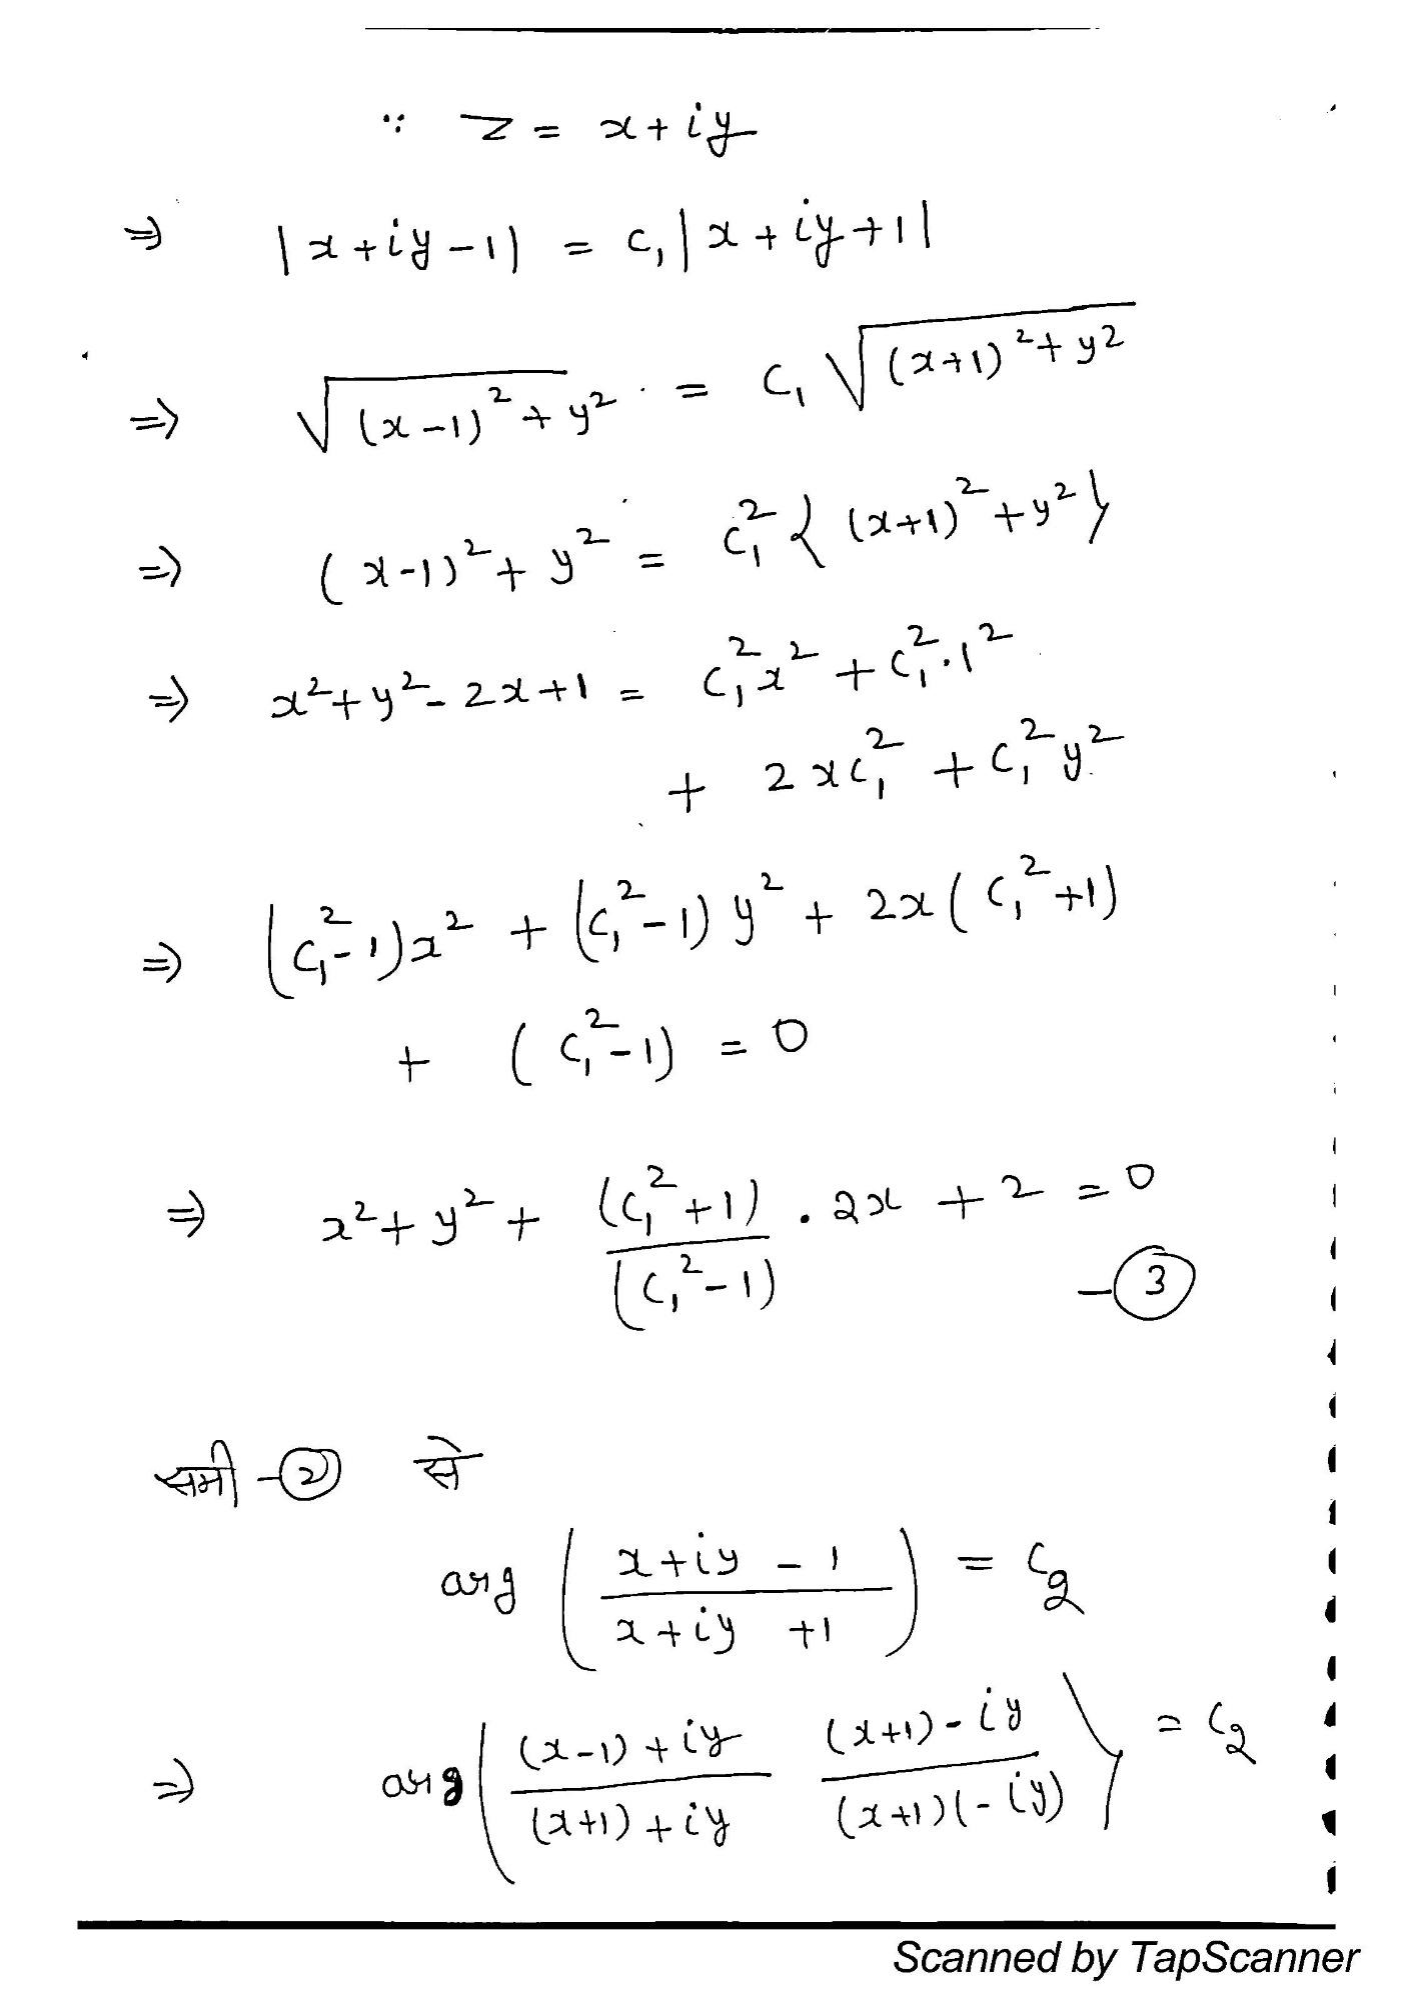 ∵ z = x+iy
⇒ |x+iy-1| = c₁|x+iy+1|
⇒ √(x-1)²+y² = c₁ √(x+1)²+y²
⇒ (x-1)²+y² = c₁² { (x+1)²+y² }
⇒ x²+y²-2x+1 = c₁²x² + c₁².1²
+ 2xc₁² + c₁²y²
⇒ (c₁²-1)x² + (c₁²-1)y² + 2x(c₁²+1)
+ (c₁²-1) = 0
⇒ x²+y²+ (c₁²+1)/(c₁²-1) . 2x + 2 = 0
-③
समी -② से
arg ( (x+iy-1)/(x+iy+1) ) = c₂
⇒ arg( ((x-1)+iy)/((x+1)+iy) ((x+1)-iy)/((x+1)(-iy)) } = c₂
Scanned by TapScanner